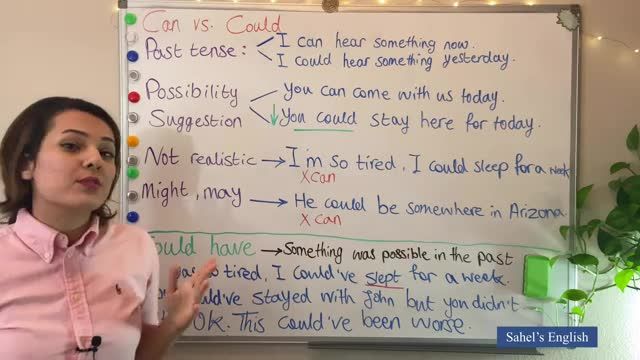 Can vs. Could
Past tense: I can hear something now.
I could hear something yesterday.
Possibility
Suggestion
You can come with us today.
You could stay here for today.
Not realistic → I'm so tired, I could sleep for a week
X can
Might, may → He could be somewhere in Arizona.
X can
Could have → Something was possible in the past
so tired, I could've slept for a week.
could've stayed with John but you didn't
OK. This could've been worse.
Sahel's English